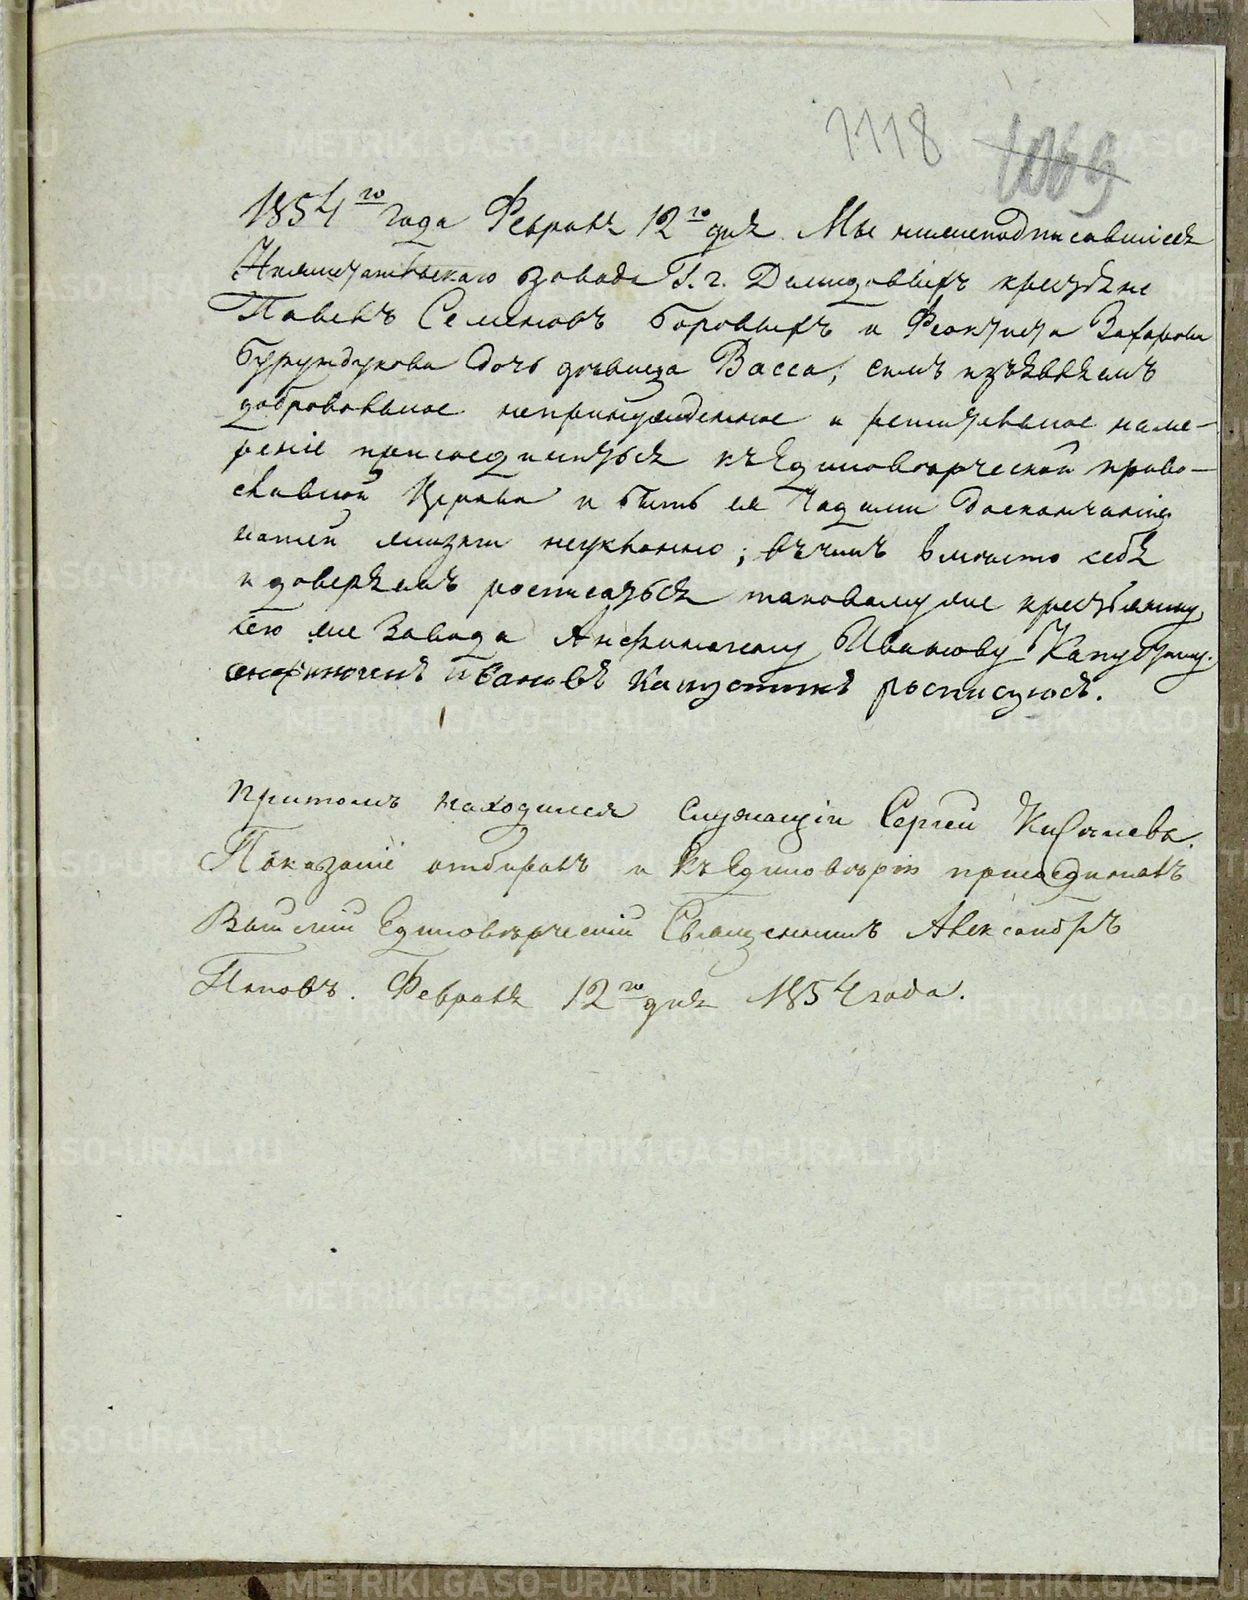 1118 1069
1854го года Февраля 12го дня Мы нижеподписавшіеся
Нижнетагильскаго завода Г.г. Демидовыхъ крестьяне
Павелъ Семеновъ Боровыхъ и Феоктиста Захарова
Бурундукова дочь девица Васса, симъ изъявляемъ
добровольное непринужденное и решительное наме-
реніе присоединиться къ Единоверческой право-
славной Церкви и быть ея Чадами доскончанія
нашей жизни неуклонно; въ чемъ вместо себя
и доверяемъ росписаться таковому же крестьянину
сего же Завода Анфиногену Иванову Капустину.
анфиногенъ ивановъ Капустинъ росписуюсь.
Притомъ находился Служащій Сергей Киселевъ.
Показаніе отбиралъ и къ Единоверію присоединялъ
Единоверческій Священникъ Александръ
Поповъ. Февраля 12го дня 1854 года.
METRIKI.GASO-URAL.RU